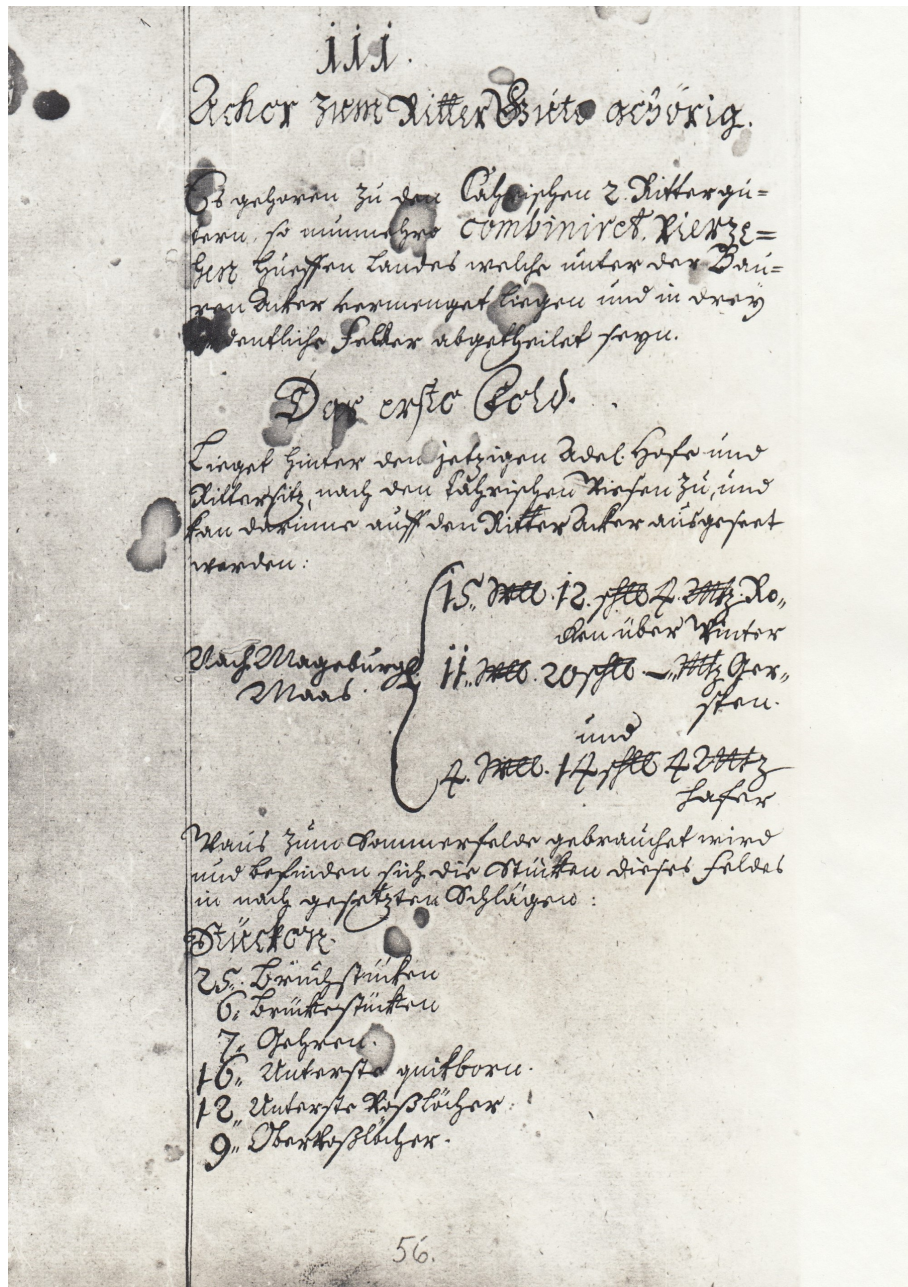 iii.
Acker zum Ritter Gute gehörig.
Es gehören zu den 2. Rittergü=
tern, so nunmehro combiniret, vierze=
hen Hueffen Landes welche unter der Bau=
ren Acker vermenget liegen und in drey
ordentliche Felder abgetheilet seyn.
Das erste Feld.
Lieget hinter den jetzigen Adel. Hofe und
Rittersitz, nach den Wiesen zu, und
kan darinne auff den Ritter Acker ausgeseet
werden:
15. Wll. 12. schll 4. Mtz. Ro„
cken über Winter
Nach Mageburg.
Maas.
11. Wll. 20 schll –„ Mtz Ger„
sten.
und
4. Wll. 14 schll 4 Mtz
Hafer
Wans zum Sommerfelde gebrauchet wird
und befinden sich die Stücken dieses Feldes
in nach gesetzten Schlägen:
Stücken.
25. Bruchstücken
6. Brückestücken
7. Gehren.
16. Unterste quikborn.
12. Unterste Voßlöcher.
9. Obervoßlöcher.
56.